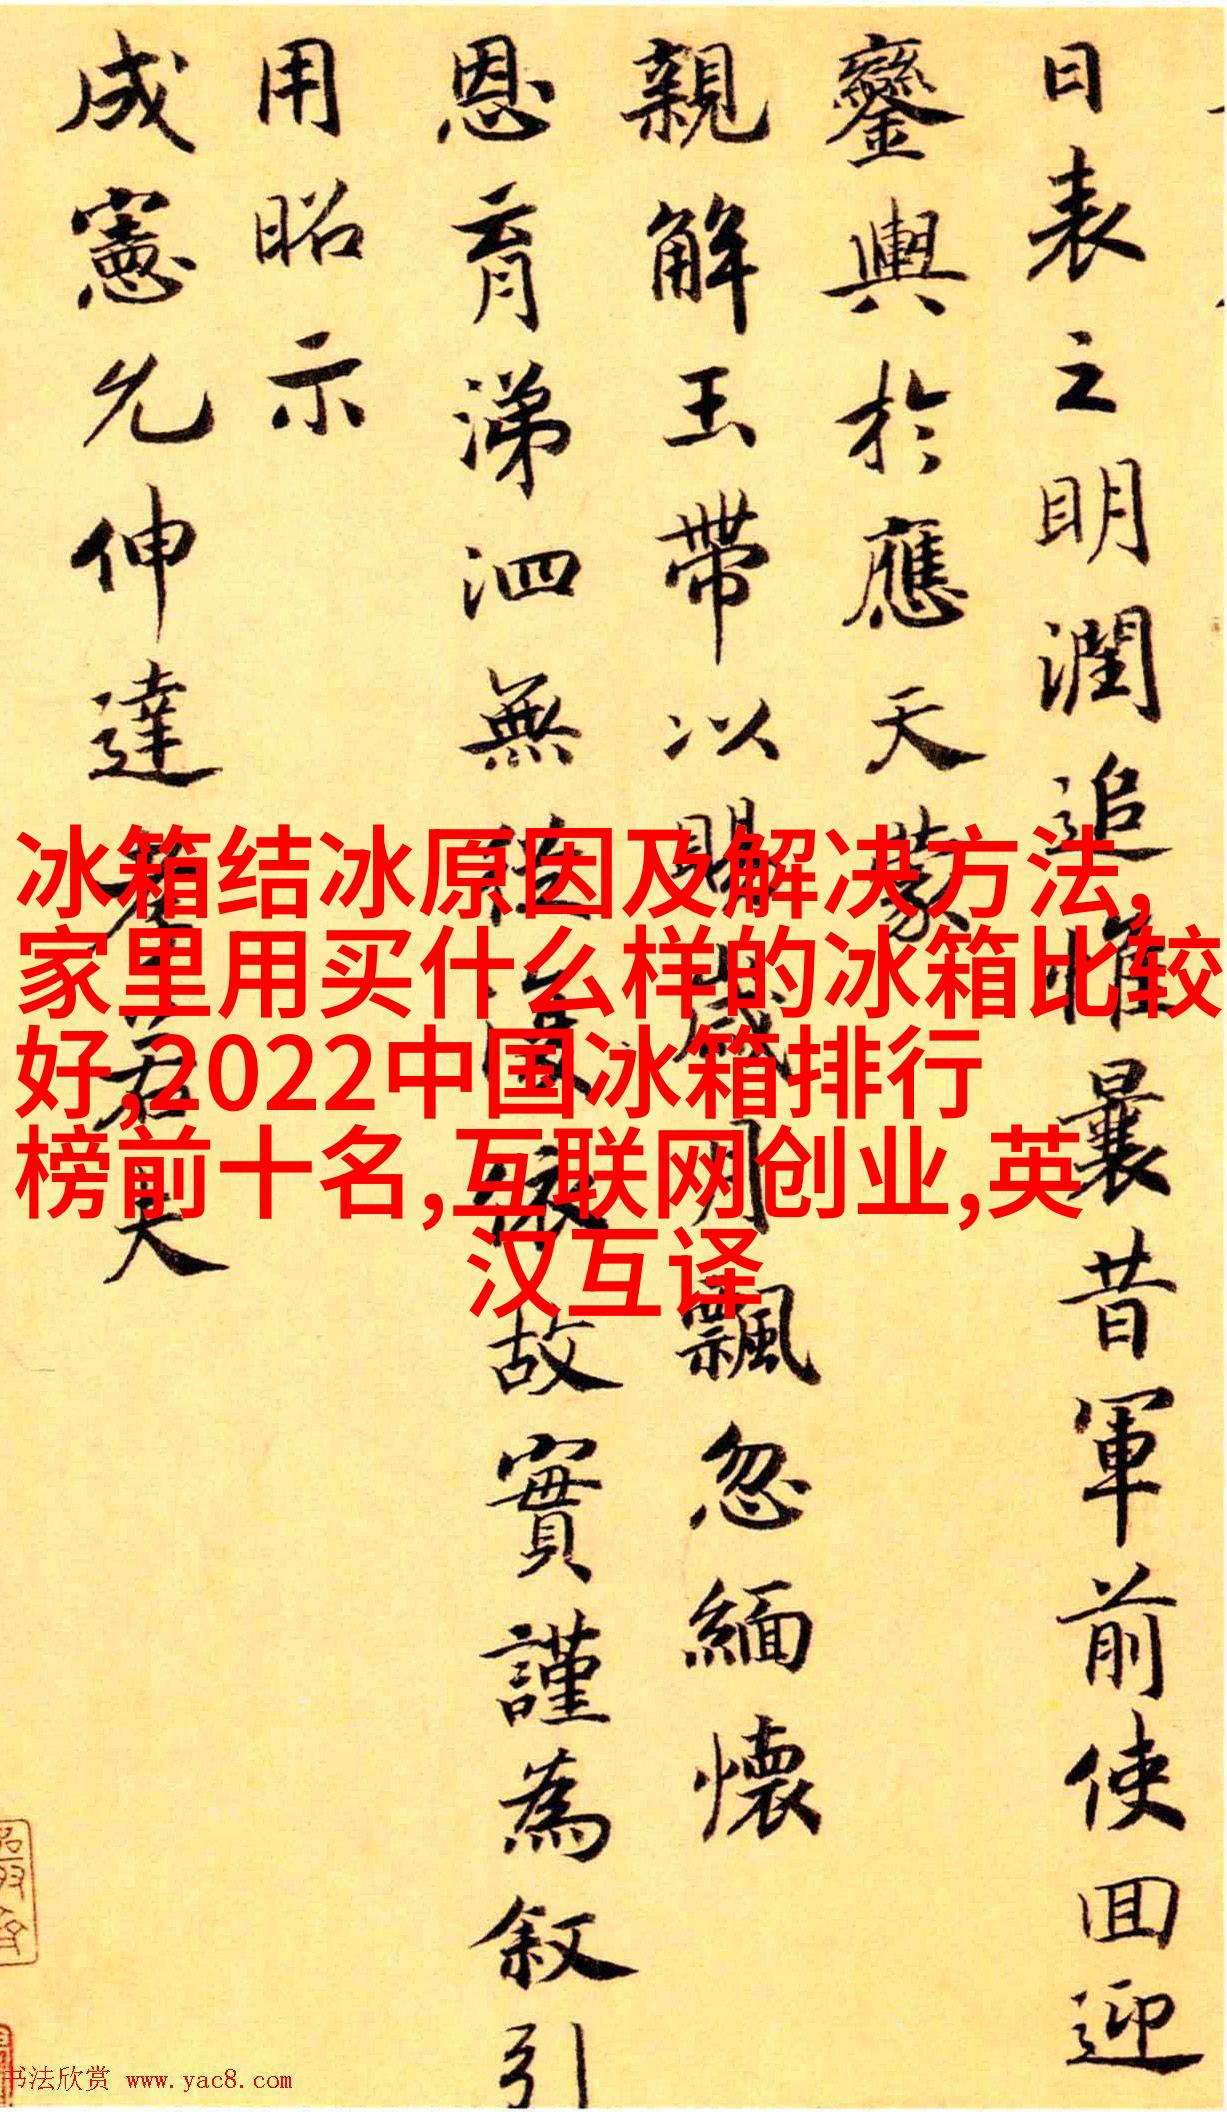 日表之明潤追惟曩昔軍前使回迎
鑾輿於應天蒙
親解玉帶以賜歲月飄忽緬懷
恩育涕泗無從
故實謹為叙引
用昭示
成憲允伸達孝若夫
冰箱结冰原因及解决方法,
家里用买什么样的冰箱比较
好,2022中国冰箱排行
榜前十名,互联网创业,英
汉互译
书法欣赏 www.yac8.com